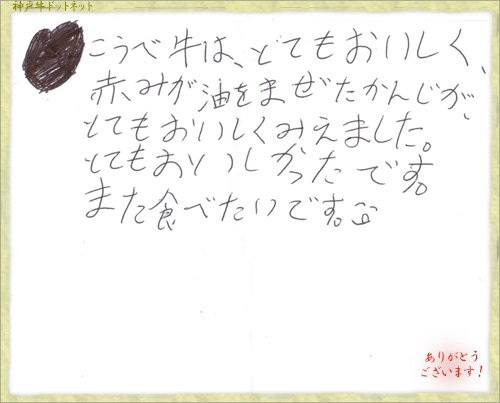 神戸牛ドットネット
こうべ牛は、とてもおいしく、
赤みが油をまぜたかんじが、
とてもおいしくみえました。
とてもおいしかったです。
また食べたいです。
ありがとう
ございます!